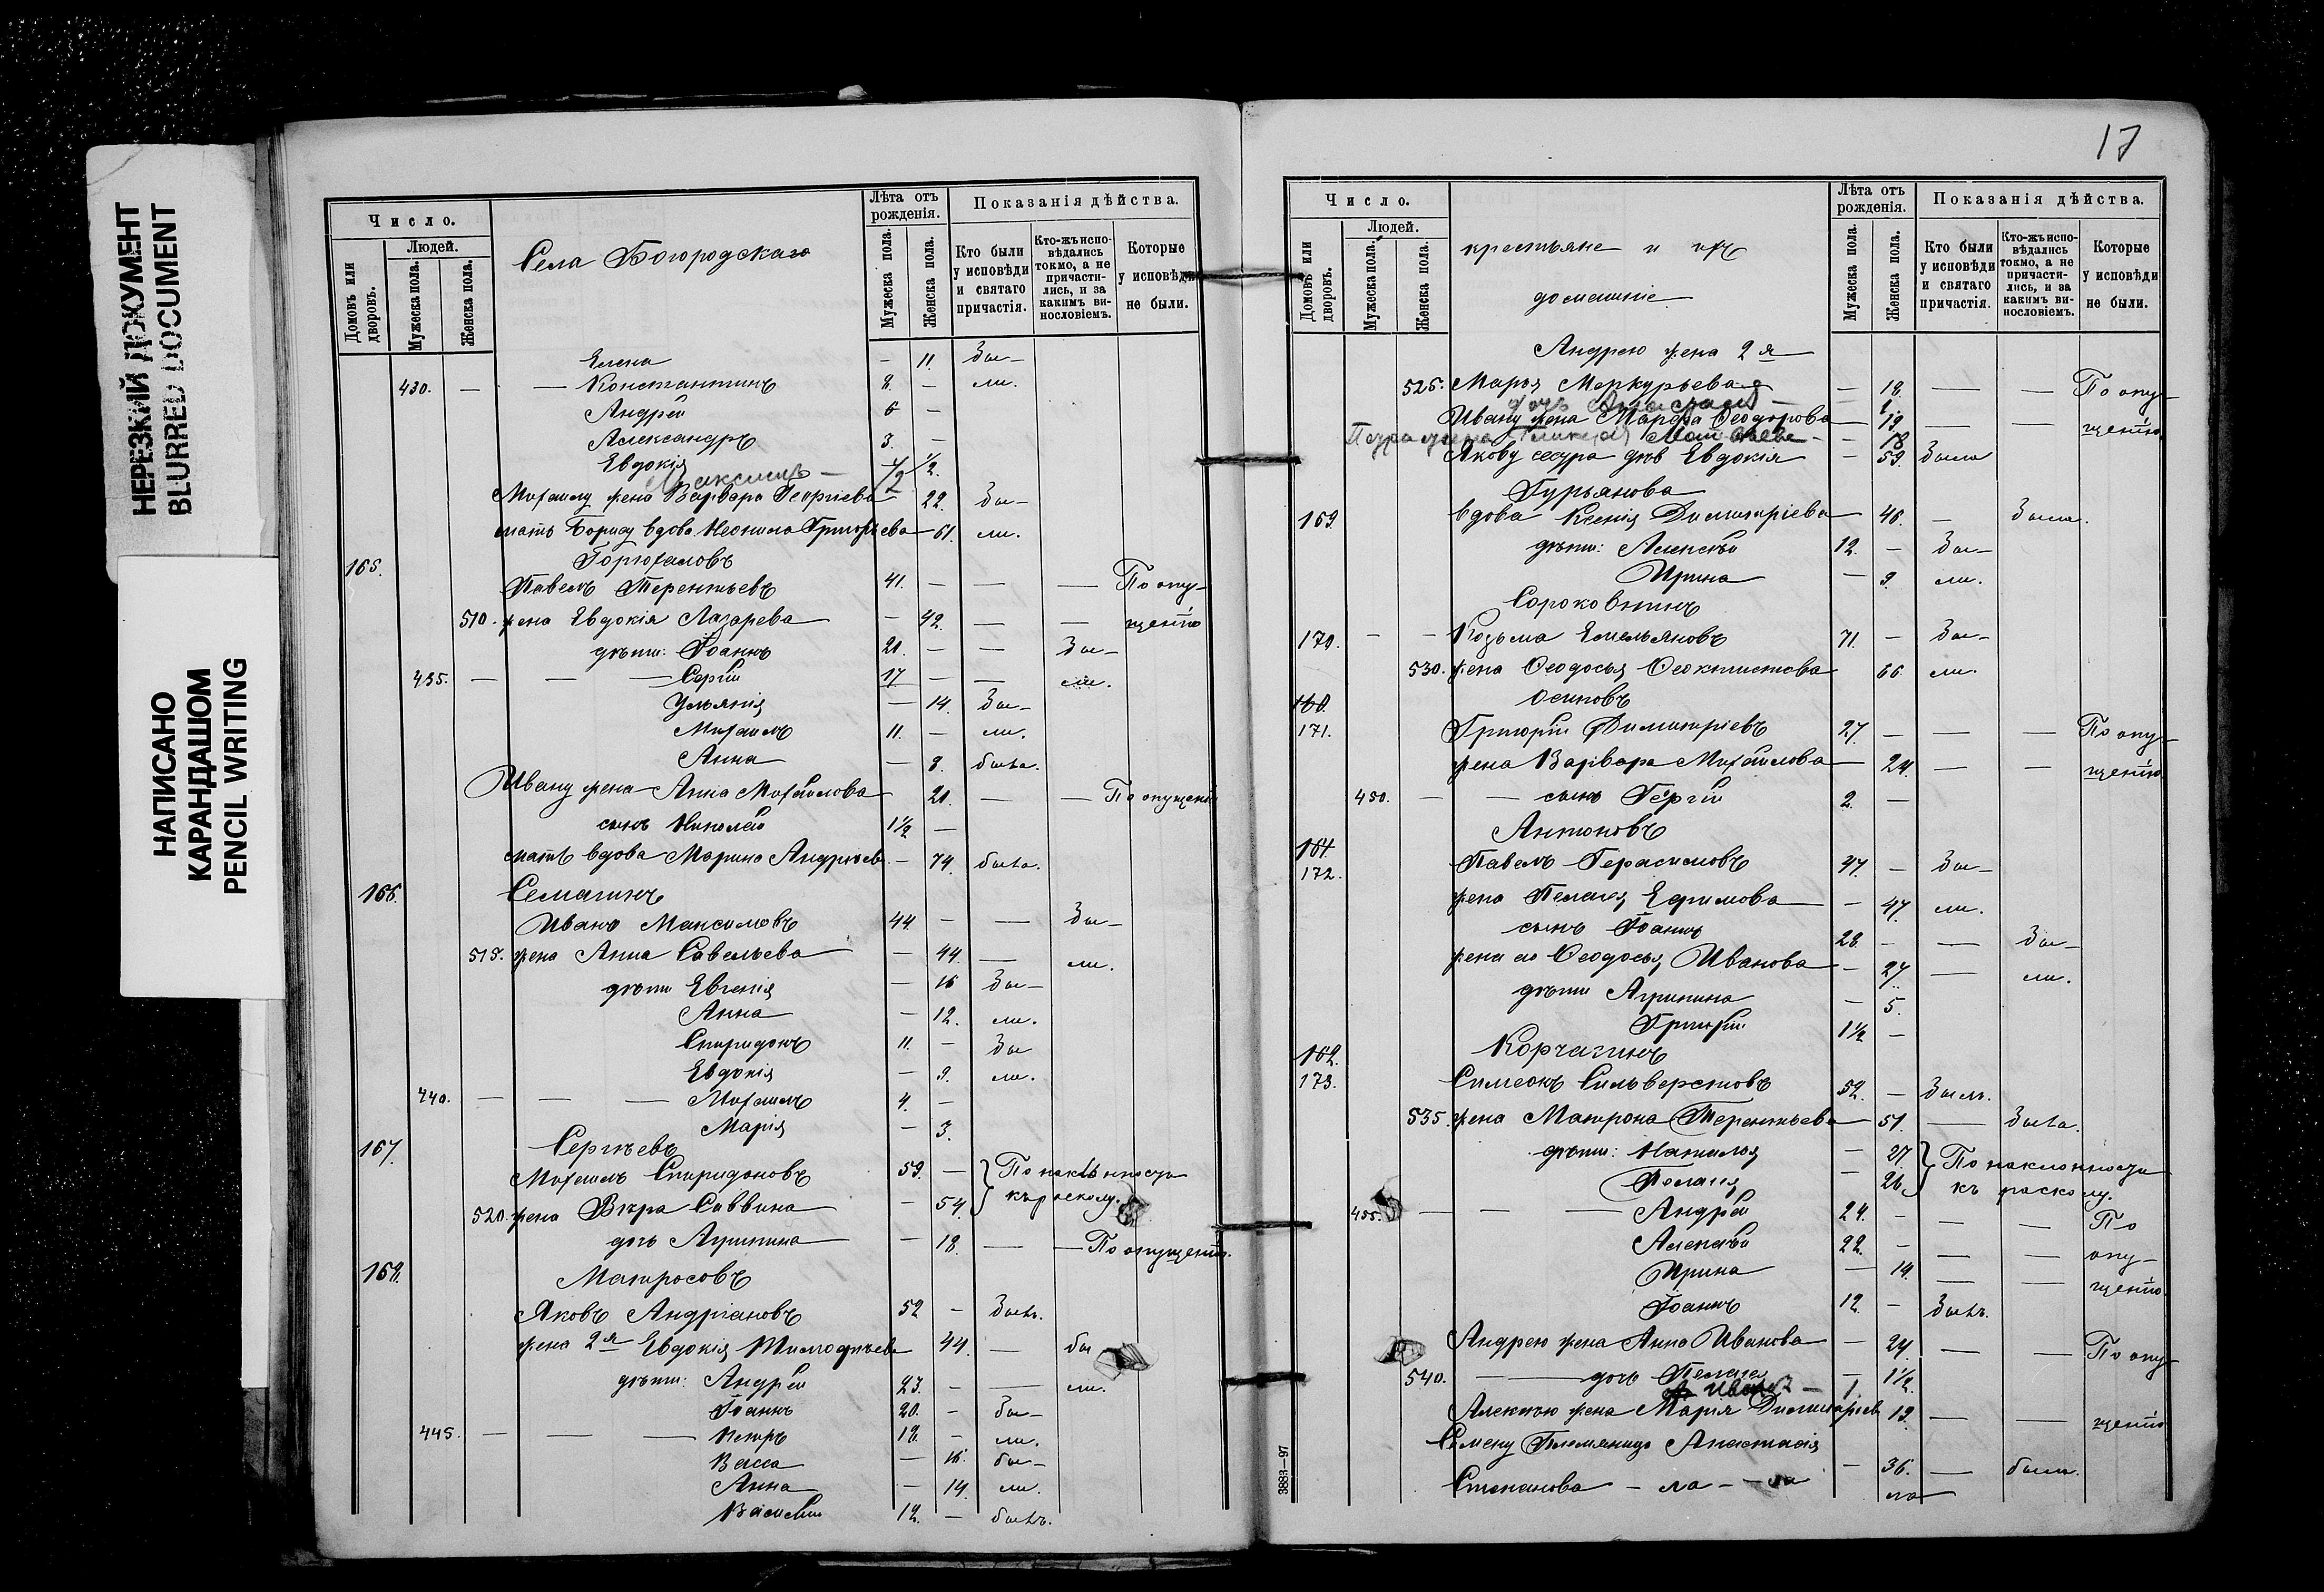 НЕРЕЗКИЙ ДОКУМЕНТ
BLURRED DOCUMENT
НАПИСАНО
КАРАНДАШОМ
PENCIL WRITING
Число.
Людей.
Домовъ или дворовъ.
Мужеска пола.
Женска пола.
Села Богородскаго
Лѣта отъ рожденія.
Мужеска пола.
Женска пола.
Показанія дѣйства.
Кто были у исповѣди и святаго причастія.
Кто-жъ испо-вѣдались токмо, а не причасти-лись, и за какимъ ви-нословіемъ.
Которые у исповѣди не были.
Елена — 11. бы-
430. — — Константинъ 8. — ли.
Андрей 6 —
Александръ 3. —
Евдокія — 1/2.
Максимъ — 1/2
Михаилу жена Варвара Георгіева — 22. бы-
мать Борису вдова Неонила Григорьева — 61. ли.
165. Горюхаловъ
Павелъ Терентьевъ 41. — — — По опу-
510. жена Евдокія Лазарева — 42. — — щенію
дѣти: Іоаннъ 20. — — бы-
435. — — — Сергій 17 — — ли.
Ульянія — 14. бы-
Михаилъ 11. — ли.
Анна — 8. была.
Ивану жена Анна Михайлова 20. — — По опущенію
сынъ Николай 1 1/2 —
мать вдова Марина Андреев — 74. была.
166. Семагинъ
Иванъ Максимовъ 44. — — бы-
515. жена Анна Савельева — 44. — ли.
дѣти Евгенія — 16 бы-
Анна — 12. ли.
Спиридонъ 11. — бы
Евдокія — 9. ли.
440. — — — Михаилъ 4. —
Марія — 3.
167. Сергѣевъ
Михаилъ Спиридоновъ 59. — По наклонности
520. жена Вѣра Саввина — 54. къ расколу.
дочь Агрипина — 18. — — По опущенію.
168. Матросовъ
Яковъ Андріановъ 52 — былъ.
жена 2я Евдокія Тимофѣева 44. — бы
дѣти: Андрей 23. — — ли.
Іоаннъ 20. — бы-
445. — — — Петръ 18. — ли.
Васса — 16. бы-
Анна — 14. ли.
Василій 12. — былъ.
17
Число.
Людей.
Домовъ или дворовъ.
Мужеска пола.
Женска пола.
крестьяне и ихъ
домашніе
Лѣта отъ рожденія.
Мужеска пола.
Женска пола.
Показанія дѣйства.
Кто были у исповѣди и святаго причастія.
Кто-жъ испо-вѣдались токмо, а не причасти-лись, и за какимъ ви-нословіемъ.
Которые у исповѣди не были.
Андрею жена 2я
525. Марья Меркурьева — 18. — — По опу-
дочь Анастасія — 1.
Ивану жена Марѳа Ѳеодорова — 19. — — щенію
Петра жена Гликерія Матвеева — 18
Якову сестра дѣв Евдокія — 59. была
Гурьянова
169. вдова Ксенія Димитріева — 46. — была.
дѣти: Алексѣй 12. — бы-
Ирина — 9. ли.
Сороковнинъ
170. — — Козьма Емельяновъ 71. — бы-
530. жена Ѳеодосья Ѳеоктистова 66. ли.
160. Осиповъ
171. Григорій Димитріевъ 27. — — — По опу-
жена Варвара Михайлова — 24. — — щенію
450. — — сынъ Георгій 2. —
Антоновъ
161.
172. Павелъ Герасимовъ 47. — бы-
жена Пелагея Ефимова — 47. ли.
сынъ Іоаннъ 28. — — бы-
жена его Ѳеодосья Иванова — 27. — ли.
дѣти Агрипина — 5.
Григорій 1 1/2 —
162. Корчагинъ
173. Симеонъ Сильверстовъ 52. — былъ.
535. жена Матрона Терентьева — 51. — была.
дѣти: Наталья — 27. По наклонности
Пелагія — 26. къ расколу.
455. — — — Андрей 24. — — — По
Алексѣй 22. — — — опу-
Ирина — 19. — — щенію.
Іоаннъ 12. — былъ.
Андрею жена Анна Иванова — 24. — — По опу-
540. — — дочь Пелагея — 1 1/2.
Иванъ — 1.
Алексѣю жена Марія Димитріев 19. — — щенію
Семену племяница Анастасія
Степанова — 36. — была.
3883—97